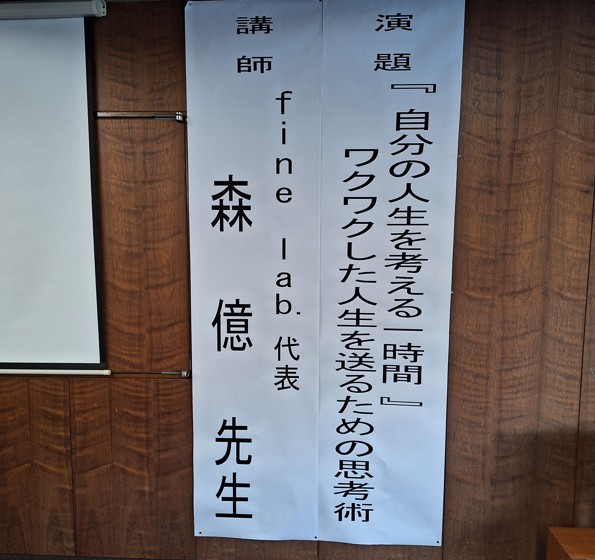 演題
『自分の人生を考える一時間』
ワクワクした人生を送るための思考術
講師
fine lab. 代表
森億先生